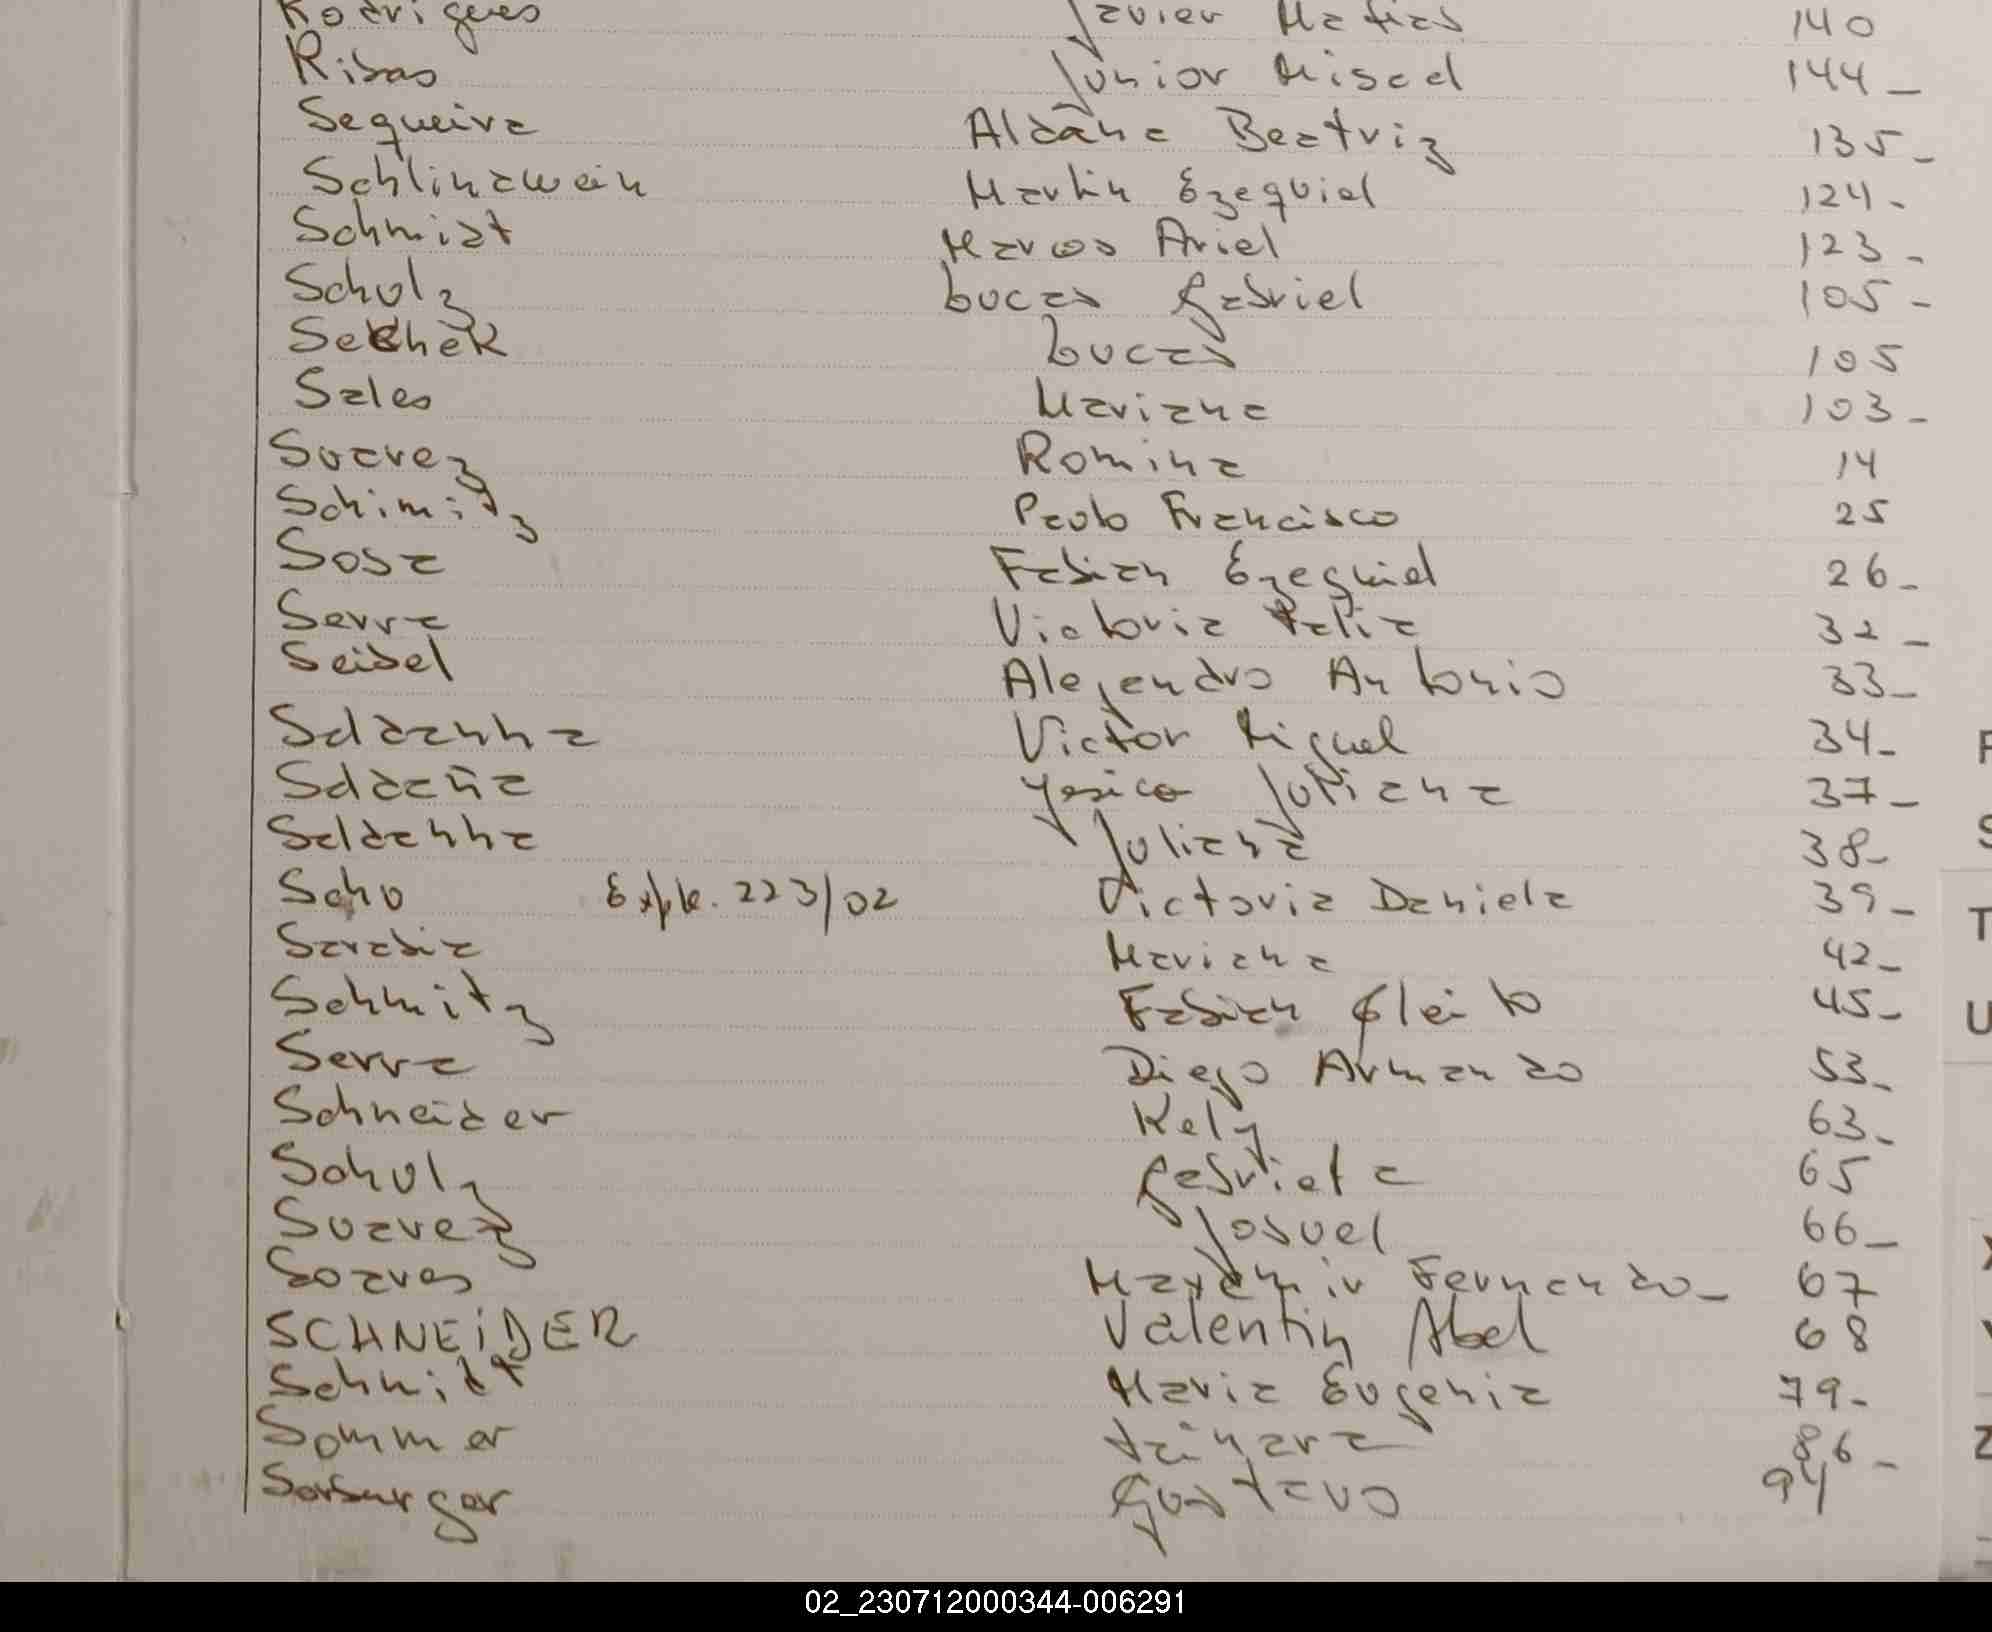 Rodrigues Javier Matias 140
Ribas Junior Misael 144-
Sequeira Aldana Beatriz 135-
Schlinzwein Martin Ezequiel 124-
Schmidt Marcos Ariel 123-
Scholz Lucas Gabriel 105-
Sechek Lucas 105
Sales Mariana 103-
Suarez Romina 14
Schimitz Paulo Francisco 25
Sosa Fabian Ezequiel 26-
Serra Victoria 32-
Seibel Alejandro Antonio 33-
Saldanha Victor Miguel 34-
Saldaña Yesica Juliana 37-
Saldanha Juliana 38-
Scho Expte. 223/02 Victoria Daniela 39-
Sarabia Mariana 42-
Schmitz Fabian Gleito 45-
Serra Diego Armando 53-
Schneider Kely 63-
Schulz Gabriela 65
Suarez Josuel 66-
Soares Fernando- 67
SCHNEiDER Valentin Abel 68
Schmidt Maria Eugenia 79-
Sommer Tainara 86-
Gustavo 94
F
S
T
U
Z
02_230712000344-006291